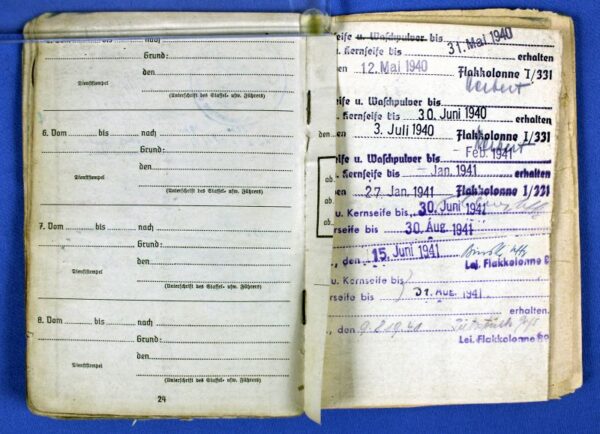 5. Vom bis nach
Grund:
den
Dienststempel
(Unterschrift des Staffel- usw. Führers)
6. Vom bis nach
Grund:
den
Dienststempel
(Unterschrift des Staffel- usw. Führers)
7. Vom bis nach
Grund:
den
Dienststempel
(Unterschrift des Staffel- usw. Führers)
8. Vom bis nach
Grund:
den
Dienststempel
(Unterschrift des Staffel- usw. Führers)
24
ab
ab
ab
den
eife u. Waschpulver bis
. Kernseife bis 31. Mai 1940
erhalten
en 12. Mai 1940 Flakkolonne I/331
eife u. Waschpulver bis
. Kernseife bis 30. Juni 1940
erhalten
3. Juli 1940 Flakkolonne I/331
eife u. Waschpulver bis - Feb. 1941
. Kernseife bis - Jan. 1941
erhalten
en 27. Jan. 1941 Flakkolonne I/331
u. Kernseife bis 30. Juni 1941
rseife bis 30. Aug. 1941
, den 15. Juni 1941
Lei. Flakkolonne
u. Kernseife bis
rseife bis 31. Aug. 1941
erhalten.
, den
Lei. Flakkolonne